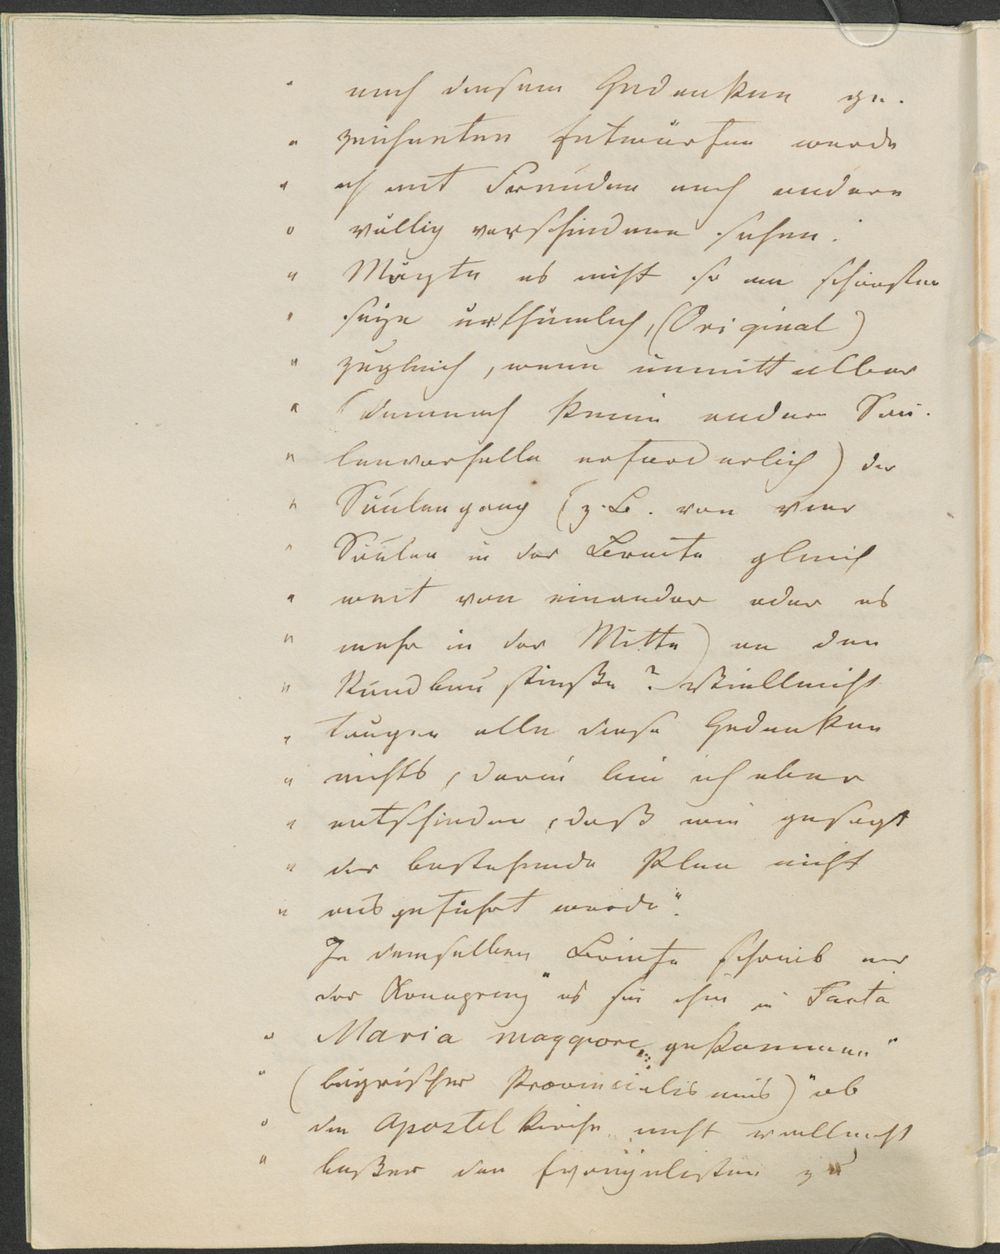 " nach diesem Gedanken ge-
" zeichneten Entwürfen werde
" ich mit Freuden auch andere
" völlig verschiedene sehen.
" Mögte es nicht so am schönsten
" seyn urthümlich, (Original)
" zugleich, wenn unmittelbar
" (demnach keine andere Säu-
" lenvorhalle erforderlich) der
" Säulengang (z. B. von vier
" Säulen in der Breite gleich
" weit von einander oder es
" mehr in der Mitte) an den
" Rundbau stieße? Vielleicht
" taugen alle diese Gedanken
" nichts, darin bin ich aber
" entschieden, daß wie gesagt
" der bestehende Plan nicht
" ausgeführt werde".
In demselben Briefe schrieb mir
der Kronprinz "es sei ihm in Santa
" Maria maggiore gekommen"
" (bayrischer Provincialismus) "ob
" die Apostelkirche nicht vielleicht
" besser den Evangelisten zu